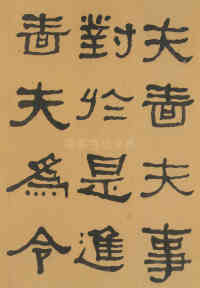 夫嗇夫事
對於是進
嗇夫為令